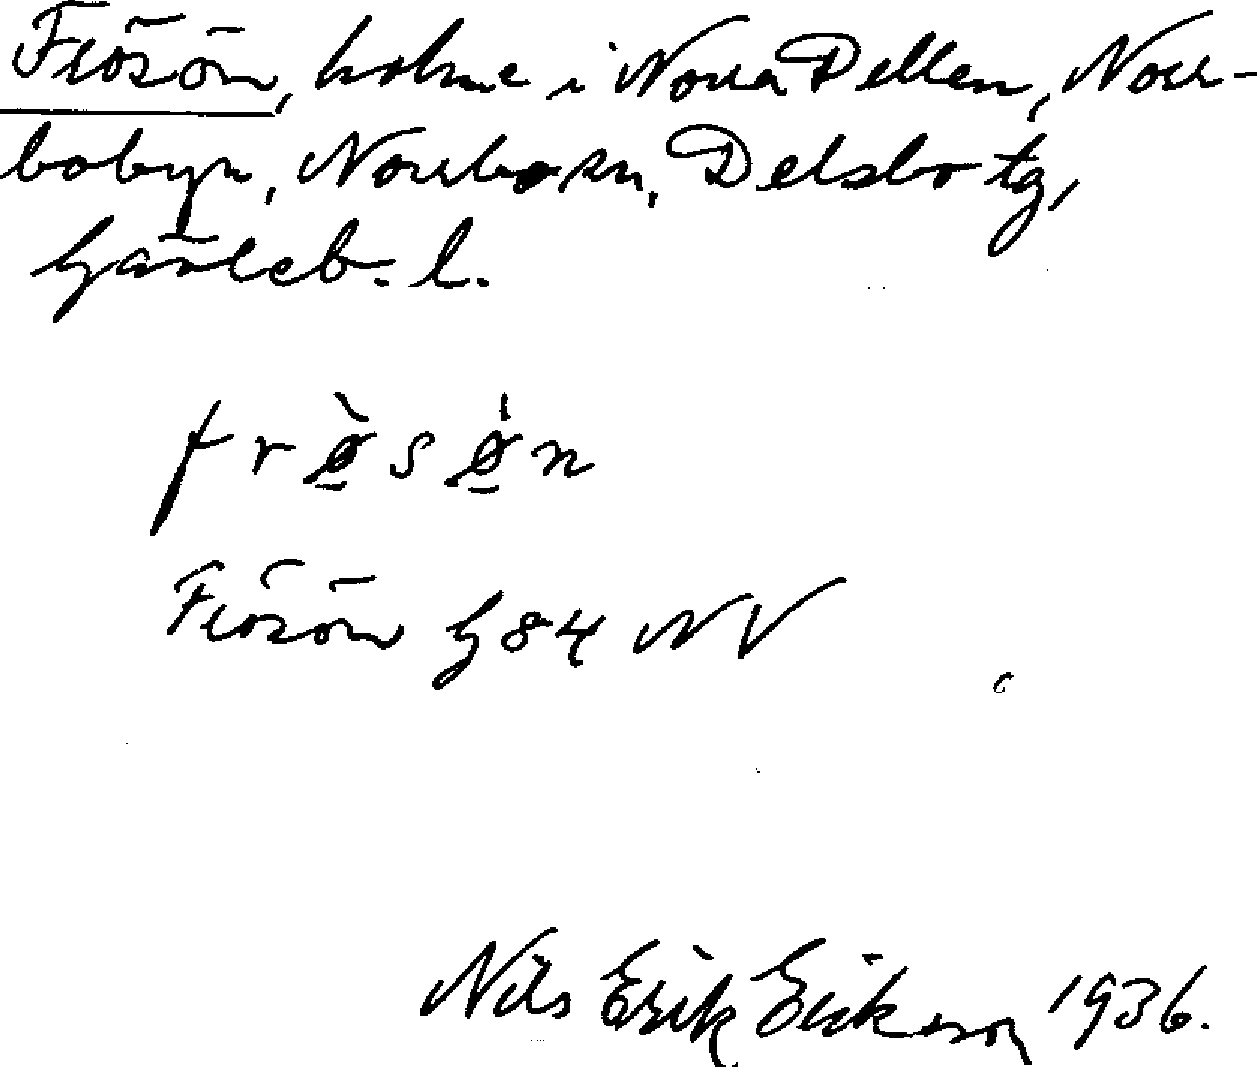 Frösön, holme i Norra Dellen, Norr-
bobyn, Norrbo sn, Delsbo tg,
Gävleb. l.
frø̀søn
Frösön G84 NV
Nils Erik Erikson 1936.